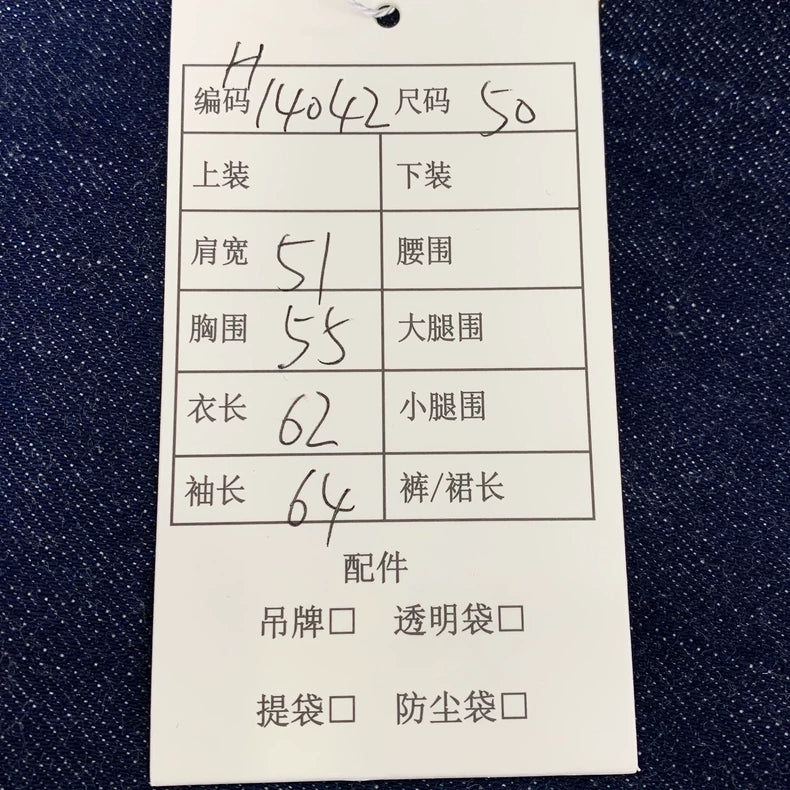 编码 H14042 尺码 50
上装 下装
肩宽 51 腰围
胸围 55 大腿围
衣长 62 小腿围
袖长 64 裤/裙长
配件
吊牌□ 透明袋□
提袋□ 防尘袋□